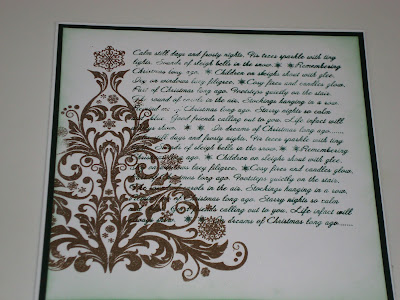 Calm still days and frosty nights. Fir trees sparkle with tiny
lights. Sounds of sleigh bells in the snow. Remembering
Christmas long ago. Children on sleighs shout with glee.
Ice on windows lacy filigree. Cosy fires and candles glow.
Past of Christmas long ago. Footsteps quietly on the stairs.
The sound of carols in the air. Stockings hanging in a row.
of Christmas long ago. Starry nights so calm
Good friends calling out to you. Life infact will
always slow. In dreams of Christmas long ago......
still days and frosty nights. Fir trees sparkle with tiny
Sounds of sleigh bells in the snow. Remembering
Christmas long ago. Children on sleighs shout with glee.
on windows lacy filigree. Cosy fires and candles glow.
of Christmas long ago. Footsteps quietly on the stairs.
carols in the air. Stockings hanging in a row.
Christmas long ago. Starry nights so calm
friends calling out to you. Life infact will
slow. In dreams of Christmas long ago......